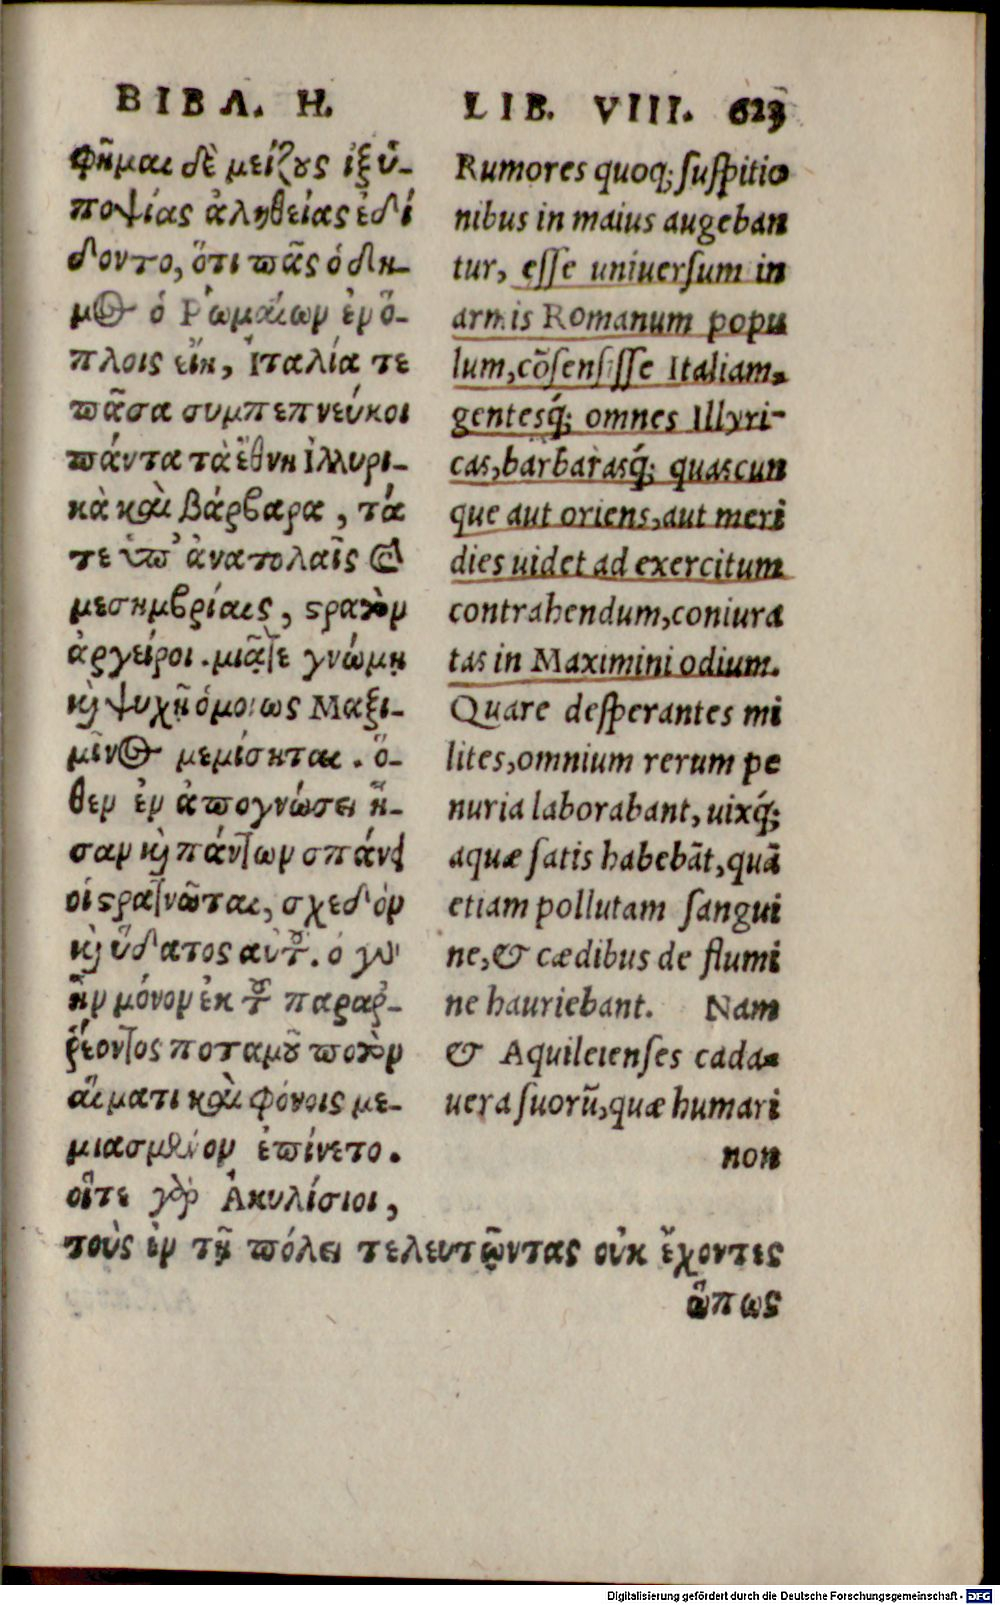 ΒΙΒΛ. Η.
φῆμαι δὲ μείζους ἐξ ὑ-
ποψίας ἀληθείας ἐδί
δοντο, ὅτι πᾶς ὁ δῆ-
μος ὁ Ῥωμαίων ἐν ὅ-
πλοις εἴη, Ἰταλία τε
πᾶσα συμπεπνεύκοι
πάντα τὰ ἔθνη Ἰλλυρι-
κὰ καὶ βάρβαρα, τά
τε ὑπ' ἀνατολαῖς καὶ
μεσημβρίαις, στρατὸν
ἀργείροι. μιᾷ τε γνώμῃ
καὶ ψυχῇ ὁμοίως Μαξι-
μῖνος μεμίσηται. ὅ-
θεν ἐν ἀπογνώσει ἦ-
σαν καὶ πάντων σπάνει
οἱ στρατιῶται, σχεδὸν
καὶ ὕδατος αὐτοῦ. ὃ γὰρ
ἦν μόνον ἐκ τοῦ παραρ-
ρέοντος ποταμοῦ ποτὸν
αἵματι καὶ φόνοις με-
μιασμένον ἐπίνετο.
οἵτε γὰρ Ἀκυλίσιοι,
τοὺς ἐν τῇ πόλει τελευτῶντας οὐκ ἔχοντες
ὅπως
LIB. VIII. 623
Rumores quoq; suspitio
nibus in maius augeban
tur, esse uniuersum in
armis Romanum popu
lum, cõsensisse Italiam,
gentesq́; omnes Illyri-
cas, barbarasq́; quascun
que aut oriens, aut meri
dies uidet ad exercitum
contrahendum, coniura
tas in Maximini odium.
Quare desperantes mi
lites, omnium rerum pe
nuria laborabant, uixq́;
aquæ satis habebãt, quã
etiam pollutam sangui
ne, & cædibus de flumi
ne hauriebant. Nam
& Aquileienses cada-
uera suorũ, quæ humari
non
Digitalisierung gefördert durch die Deutsche Forschungsgemeinschaft - DFG